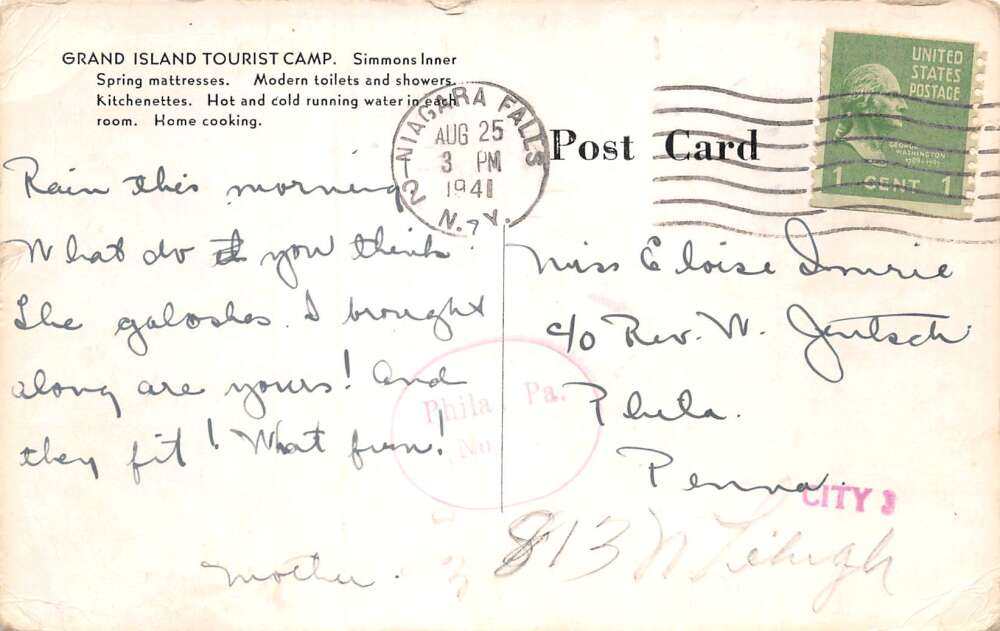 GRAND ISLAND TOURIST CAMP. Simmons Inner
Spring mattresses. Modern toilets and showers.
Kitchenettes. Hot and cold running water in each
room. Home cooking.
NIAGARA FALLS 2
AUG 25
3 PM
1941
N.Y.
Post Card
UNITED
STATES
POSTAGE
GEORGE
WASHINGTON
1789-1797
1 CENT 1
Rain this morning.
What do you think
The galoshes I brought
along are yours! And
they fit! What fun!
Mother.
Miss Eloise Imrie
c/o Rev. W. Jentsch
Phila.
Penna.
Phila Pa.
No
CITY 3
813 W Lehigh